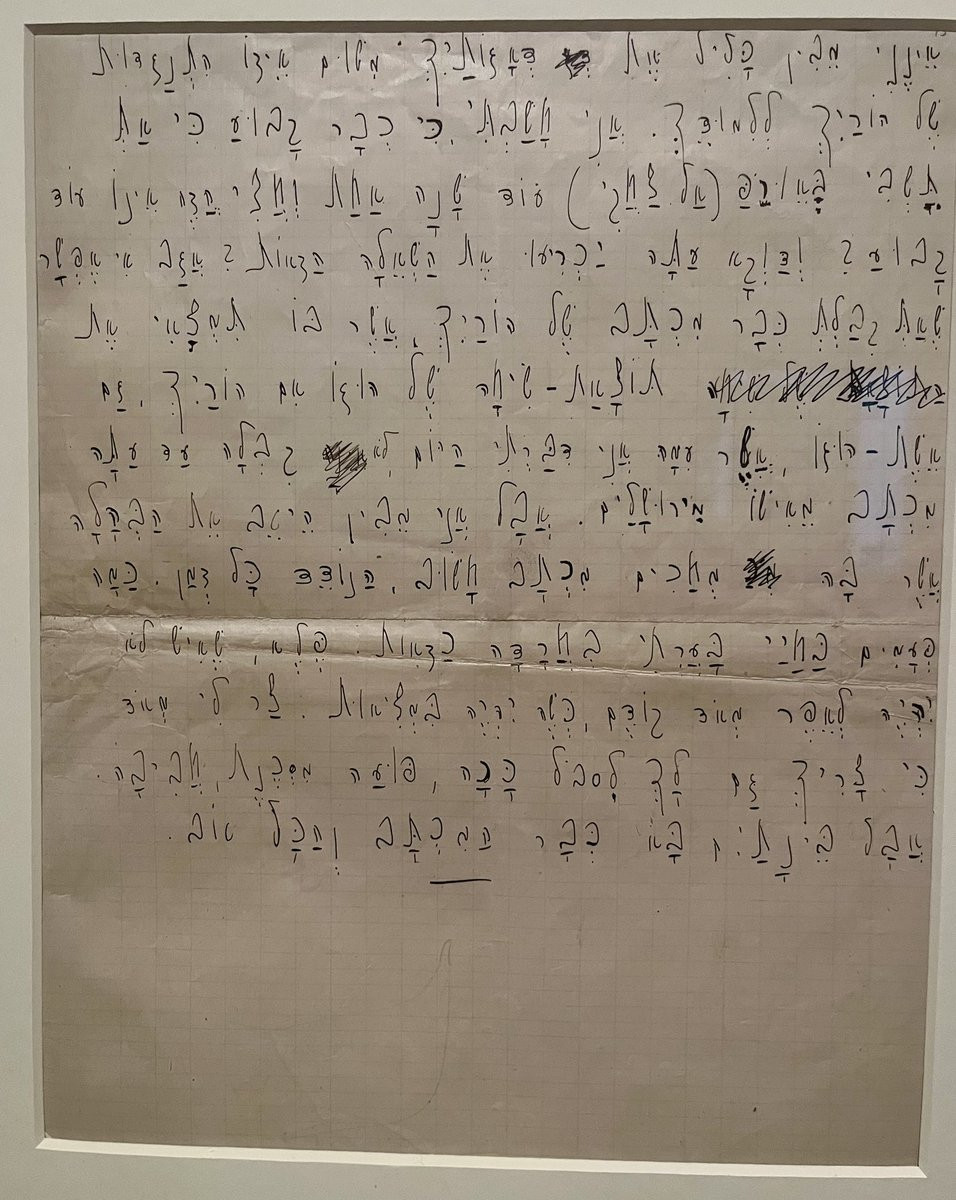 אינני מבין כליל את דאגותיך משום איזו התנגדות
של הוריך ללמודך. אני חשבתי, כי כבר קבוע כי את
תשבי באורפ (אל צחקי) עוד שנה אחת וחצי. הזה אינו עוד
קבוע? ודוקא עתה יכריעו את השאלה הזאות? אגב אי אפשר
שאת קבלת כבר מכתב של הוריך, אשר בו תמצאי את
תוצאת-שיחה של הוגו אם הוריך, גם
אשת-הוגו, אשר עמה אני דברתי היום לא קבלה עד עתה
מכתב מאישו מירושלים. אבל אני מבין היטב את הבהלה
אשר בה מחכים מכתב חשוב, הנודד כל זמן. כמה
פעמים בחיי בערתי בחרדה כזאות. פלא, שאיש לא
יהיה לאפר מאוד קודם, כשה יהיה במציאות. צר לי מאוד
כי צריך גם לך לסבל ככה, פועה מסכנת, חביבה.
אבל בינתים בא כבר המכתב והכל טוב.